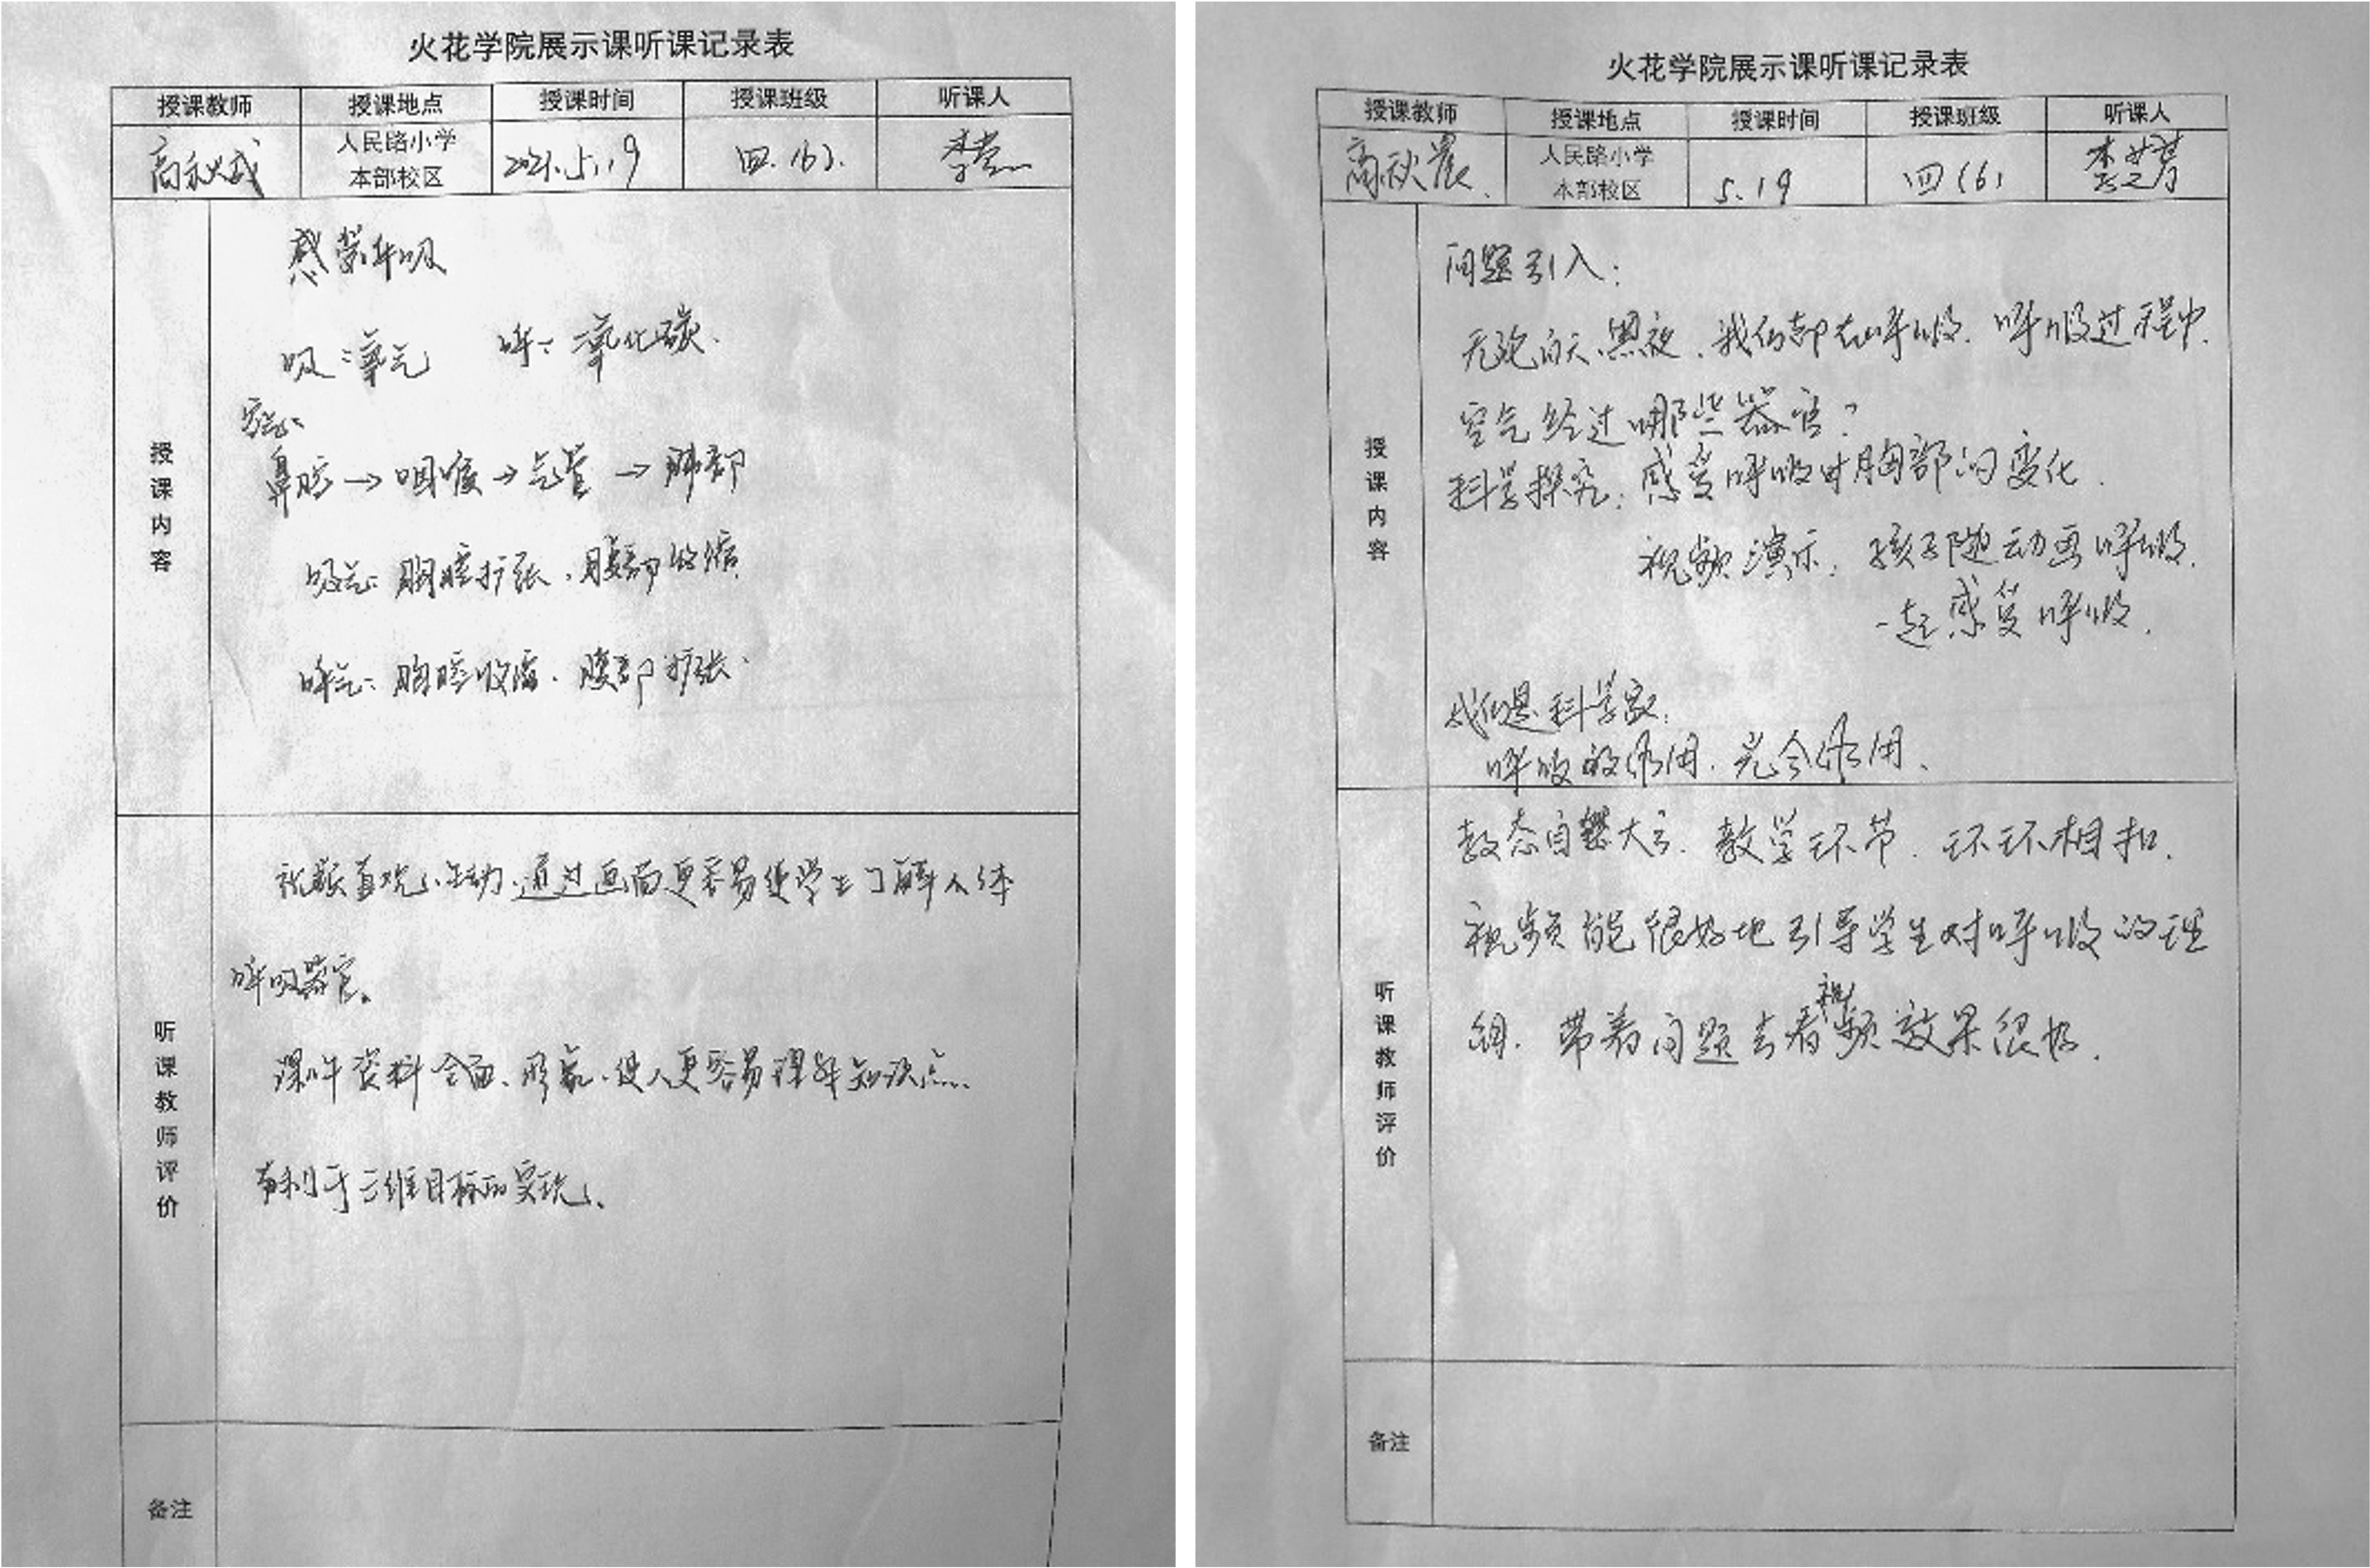 火花学院展示课听课记录表
授课教师 授课地点 授课时间 授课班级 听课人
高秋 人民路小学 2021.5.19 四.(6).
本部校区
授课内容
感受呼吸
吸:氧气 呼:二氧化碳.
空气:
鼻腔→咽喉→气管→肺部
吸气:胸腔扩张、腹部收缩
呼气:胸腔收缩、腹部扩张.
听课教师评价
视频直观、生动,通过画面更容易使学生了解人体
呼吸器官。
课件资料全面、形象、使人更容易理解知识点.
有利于三维目标的实现、
备注
火花学院展示课听课记录表
授课教师 授课地点 授课时间 授课班级 听课人
高秋晨. 人民路小学 5.19 四(6) 李
本部校区
授课内容
问题引入:
无论白天、黑夜、我们都在呼吸.呼吸过程中.
空气经过哪些器官?
科学探究:感受呼吸时胸部的变化.
视频演示:孩子随动画呼吸.
一起感受呼吸.
我们是科学家:
呼吸的作用.光合作用、
听课教师评价
教态自然大方.教学环节.环环相扣.
视频能很好地引导学生对呼吸的理
解.带着问题去看视频效果很好.
备注